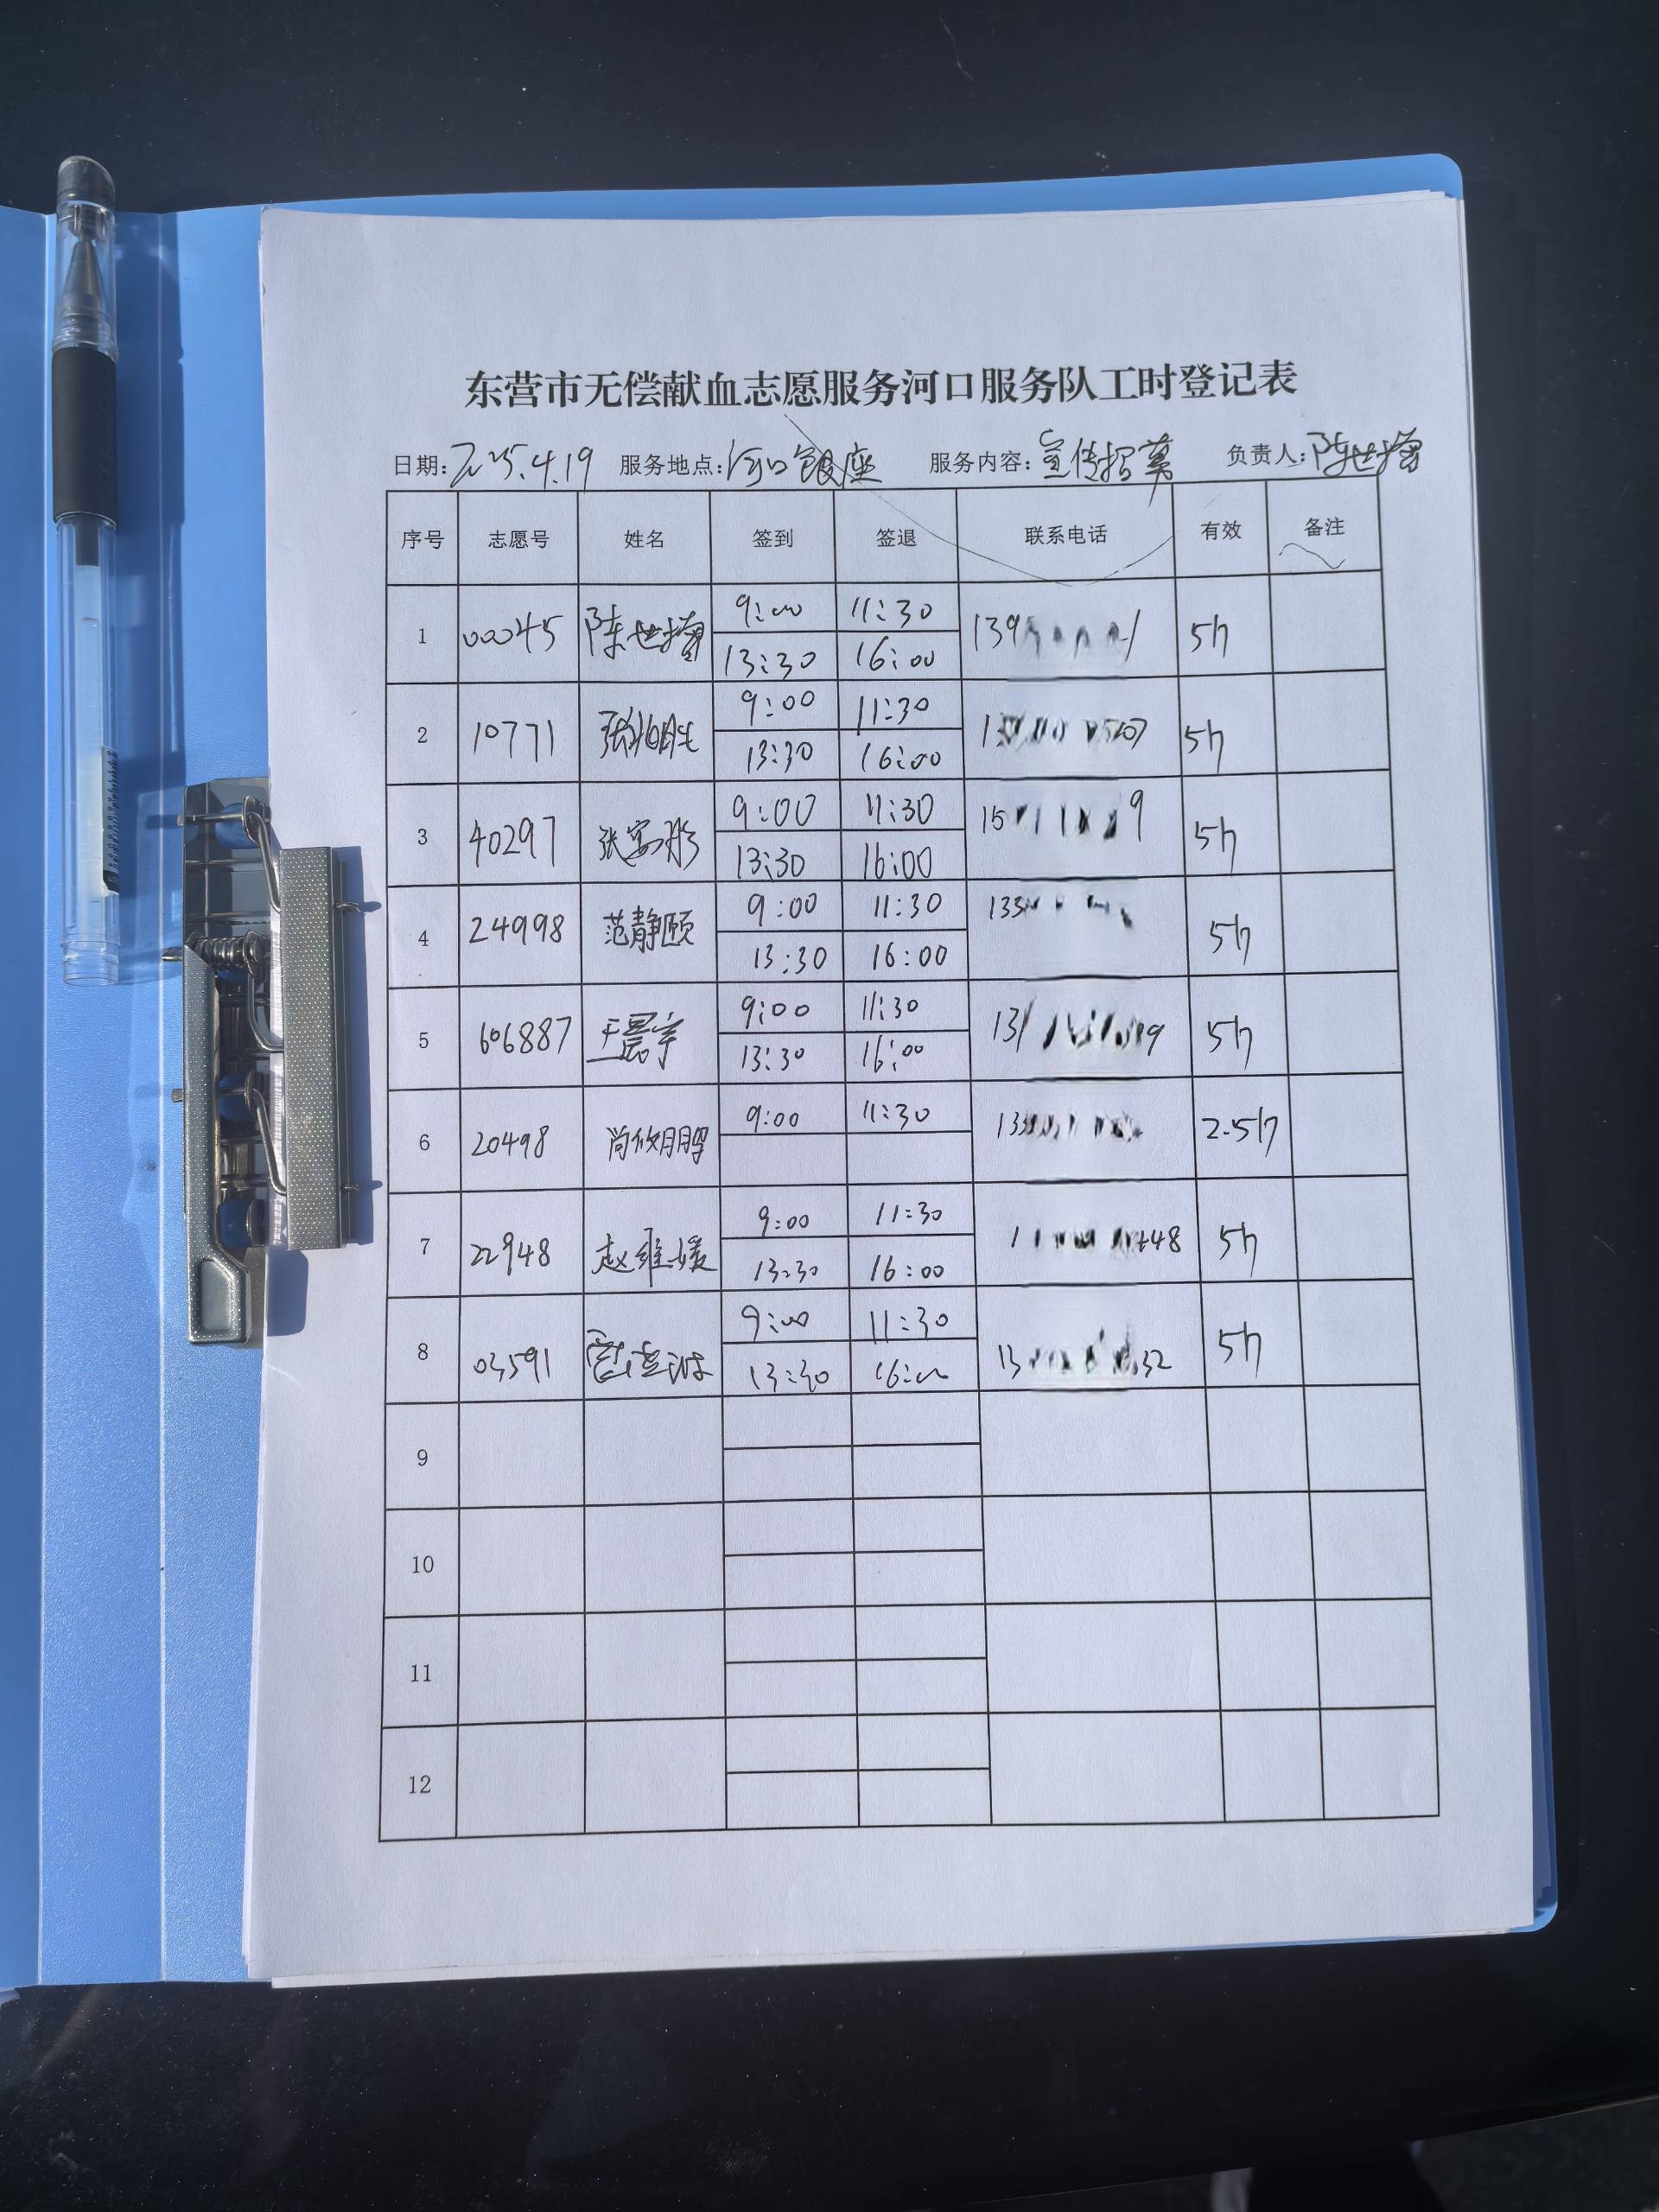 东营市无偿献血志愿服务河口服务队工时登记表
日期:2025.4.19 服务地点:河口银座 服务内容:宣传招募 负责人:陈世增
序号 志愿号 姓名 签到 签退 联系电话 有效 备注
9:00 11:30
1 00045 陈世增 139 5h
13:30 16:00
9:00 11:30
2 10771 张 5h
13:30 16:00
9:00 11:30
3 40297 张 15 9 5h
13:30 16:00
9:00 11:30
4 24998 范静颐 133 5h
13:30 16:00
9:00 11:30
5 606887 王晨宇 13 9 5h
13:30 16:00
9:00 11:30
6 20498 尚 133 2.5h
9:00 11:30
7 22948 赵维媛 1 48 5h
13:30 16:00
9:00 11:30
8 03591 13 32 5h
13:30 16:00
9
10
11
12